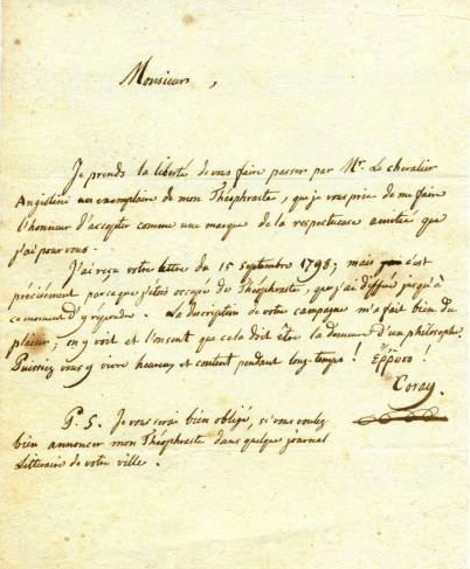 Monsieur,
Je prends la liberté de vous faire passer par Mr. Le chevalier
Angiolini un exemplaire de mon Théophraste, que je vous prie de me faire
l'honneur d'accepter comme une marque de la respectueuse amitié que
j'ai pour vous.
J'ai reçu votre lettre du 15 Septembre 1798; mais c'est
précisément parceque j'étois occupé de Théophraste, que j'ai différé jusqu'à
ce moment d'y repondre. La description de votre campagne m'a fait bien du
plaisir; on y voit et l'on sent que cela doit être la demeure d'un philosophe.
Puissiez vous y vivre heureux et content pendant long-temps! Ἔρρωσο!
Coray.
P. S. Je vous serai bien obligé, si vous voulez
bien annoncer mon Théophraste dans quelque journal
Litteraire de votre ville.